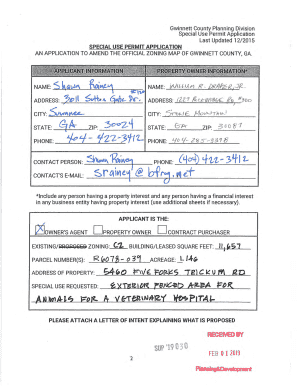 Gwinnett County Planning Division
Special Use Permit Application
Last Updated 12/2015
SPECIAL USE PERMIT APPLICATION
AN APPLICATION TO AMEND THE OFFICIAL ZONING MAP OF GWINNETT COUNTY, GA.
APPLICANT INFORMATION
NAME: Shawn Rainey
ADDRESS: 3611 Sutton Gate Dr.
CITY: Suwanee
STATE: GA ZIP: 30024
PHONE: 404-422-3412
PROPERTY OWNER INFORMATION*
NAME: WILLIAM R. DRAPER, JR.
ADDRESS:
CITY: STONE MOUNTAIN
STATE: GA ZIP: 30087
PHONE: 404-285-3398
CONTACT PERSON: Shawn Rainey PHONE: (404) 422-3412
CONTACT'S E-MAIL: srainey@bfrg.net
*Include any person having a property interest and any person having a financial interest
in any business entity having property interest (use additional sheets if necessary).
APPLICANT IS THE:
X OWNER'S AGENT PROPERTY OWNER CONTRACT PURCHASER
EXISTING/PROPOSED ZONING: C2 BUILDING/LEASED SQUARE FEET: 11,657
PARCEL NUMBER(S): R6078-039 ACREAGE: 1.146
ADDRESS OF PROPERTY: 5460 FIVE FORKS TRICKUM RD
SPECIAL USE REQUESTED: EXTERIOR FENCED AREA FOR
ANIMALS FOR A VETERINARY HOSPITAL
PLEASE ATTACH A LETTER OF INTENT EXPLAINING WHAT IS PROPOSED
RECEIVED BY
SUP '19 030
FEB 01 2019
2
Planning&Development